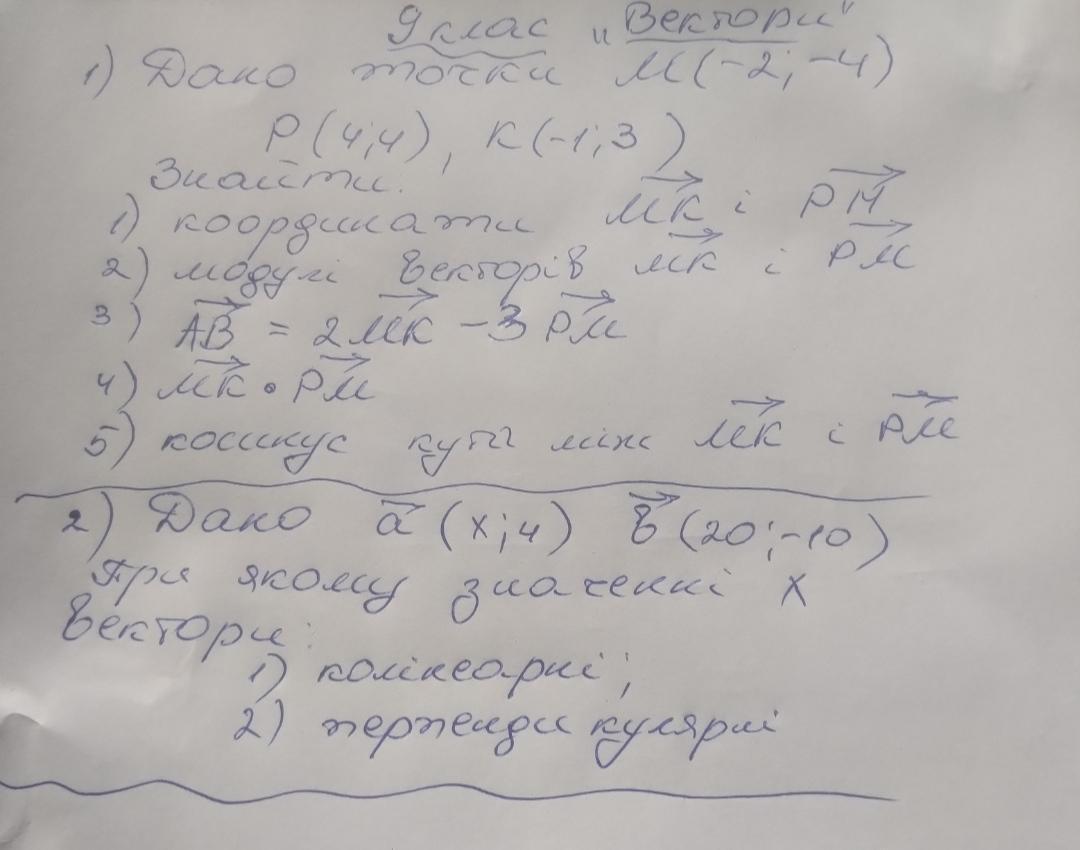 9 клас „Вектори"
1) Дано точки M(-2; -4)
P(4;4), K(-1;3)
Знайти:
1) координати MK і PM
2) модулі векторів MK і PM
3) AB = 2MK - 3PM
4) MK • PM
5) косинус кута між MK і PM
2) Дано a (x;4) b (20;-10)
При якому значенні x
вектори:
1) колінеарні;
2) перпендикулярні